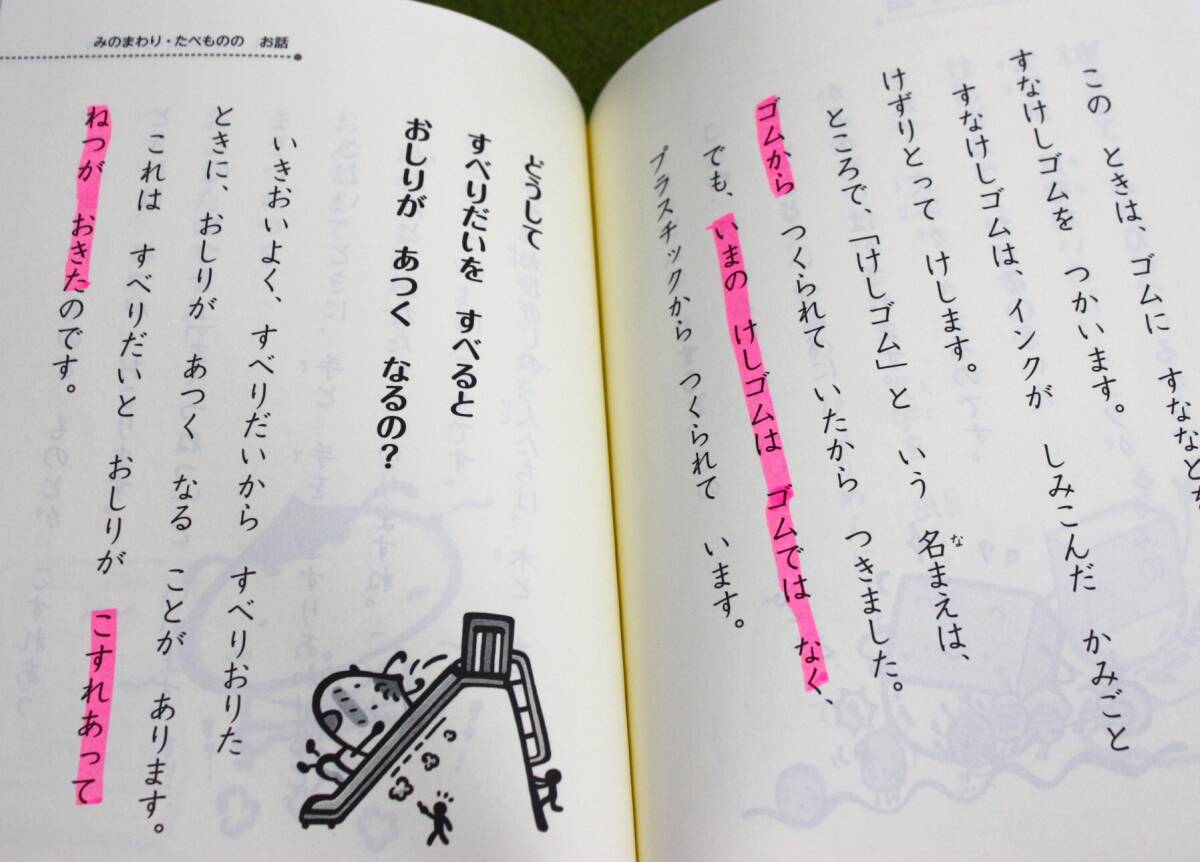 この ときは、ゴムに すななどが
すなけしゴムを つかいます。
すなけしゴムは、インクが しみこんだ かみごと
けずりとって けします。
ところで、「けしゴム」と いう 名まえは、
ゴムから つくられて いたから つきました。
でも、いまの けしゴムは ゴムでは なく、
プラスチックから つくられて います。
みのまわり・たべものの お話
どうして
すべりだいを すべると
おしりが あつく なるの？
いきおいよく、すべりだいから すべりおりた
ときに、おしりが あつく なる ことが あります。
これは すべりだいと おしりが こすれあって
ねつが おきたのです。